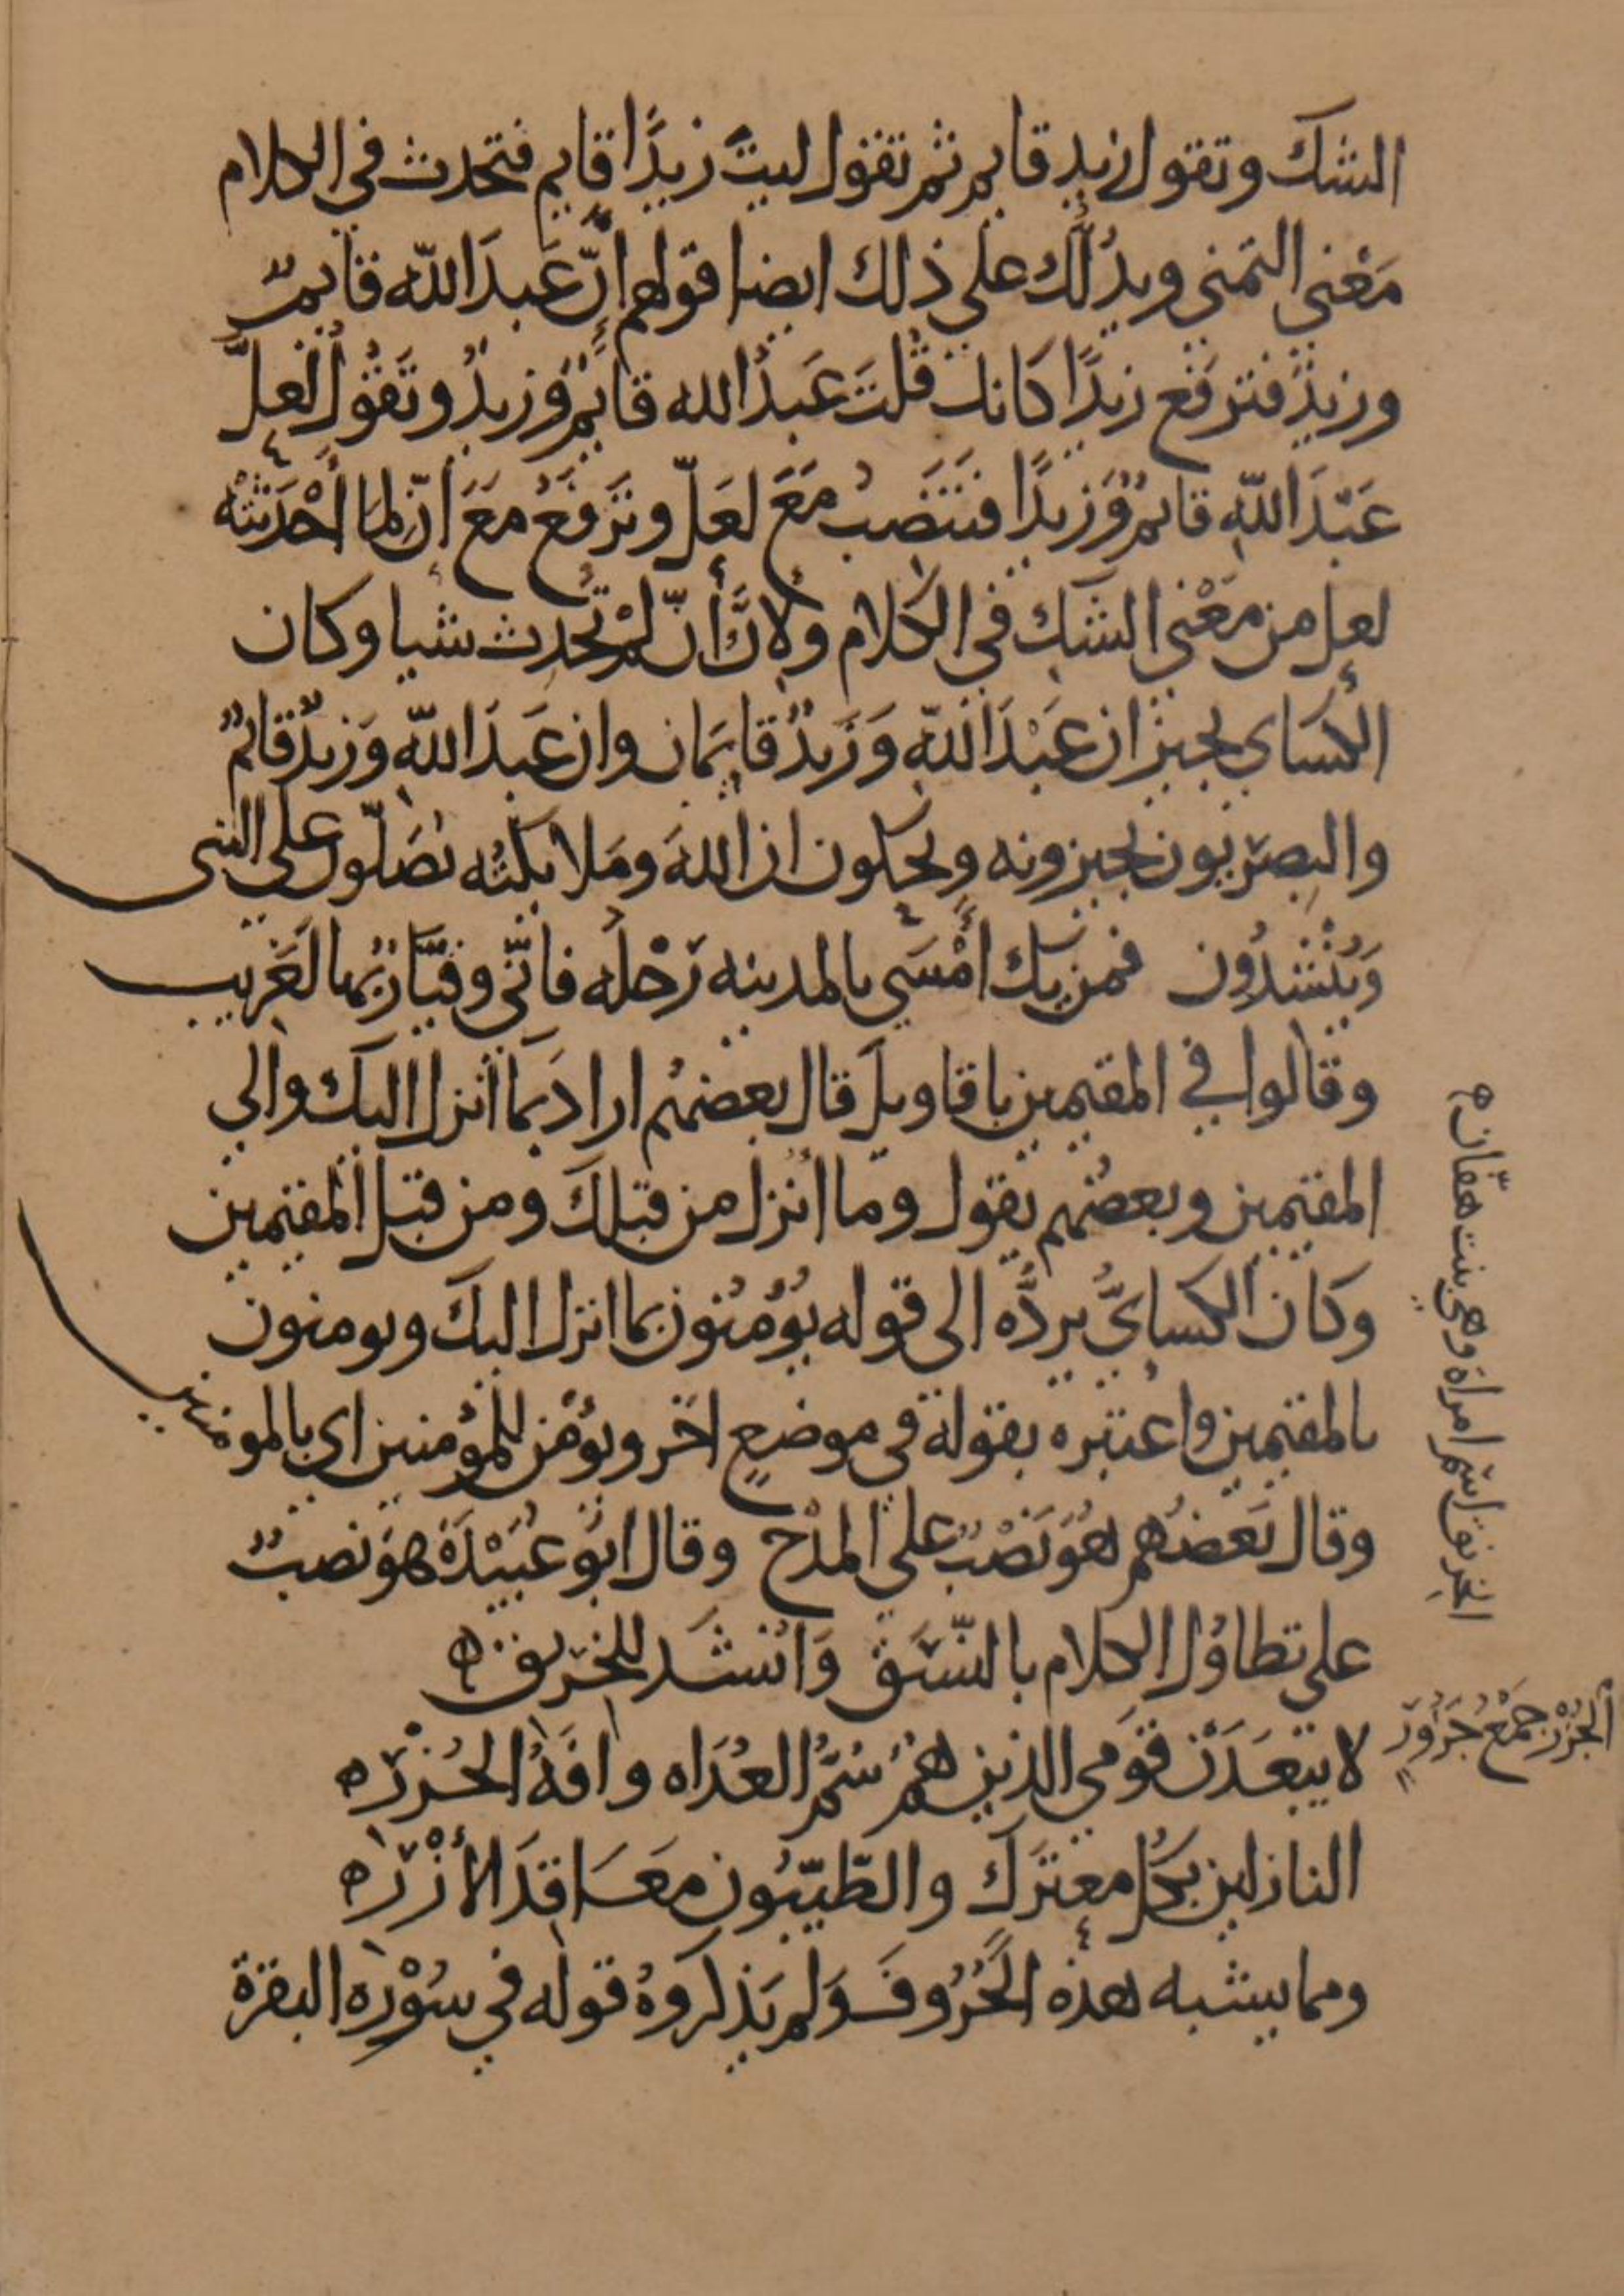 الشك وتقول زيد قايم ثم تقول ليت زيدًا قايم فتحدث في الكلام
مَعْني التمني ويدُلّك علي ذلك ايضا قولهم إنّ عَبدَ اللّه قايمٌ
وزيدٌ فترفَع زيدًا كانك قُلتَ عَبدُ الله قايمٌ وزيدٌ وتَقُولُ لَعلَّ
عَبْدَ اللّهِ قايمٌ وَزيدًا فتَنصِبُ مَعَ لعَلّ وتَرفَعُ مَعَ انّ لِمَا أَحْدَثَتْهُ
لعل من مَعْني الشك في الكلام ولانّ أنّ لم تُحدث شيا وكان
الكساي يجيز ان عَبْدَ اللّهِ وَزَيدٌ قايمَان وان عَبدَ اللّهِ وَزيدٌ قايمٌ
والبصَريون يجيزونه ويحكون ان اللهَ وَمَلايكتُه يُصَلّون علي النبي
وَيُنْشِدُون فمن يك أَمْسَي بالمدينه رَحْلُه فانّي وقيّارٌ بها لَغَريب
وقالوا في المقيمين باقاويلَ قال بعضهُم ارادَ بما انزل اليك والي
المقيمين وبعضُهم يقول وما اُنزل من قبلك ومن قبل المقيمين
وكان الكسايُّ يردُّه الي قوله يُؤمنُون بما انزل اليك ويومنون
بالمقيمين واعتبره بقوله في موضعٍ اخر ويُؤمن للمُؤمنين اي بالمومنين
وقال بَعضُهم هُوَ نَصْبٌ علي المدْح وقال ابُو عُبَيْدَةَ هوَ نصبٌ
علي تطاوُل الكلام بالنّسَق وَانشَد للخِرنق ه
لا يبعَدَنْ قوَمي الذين همُ سُمُّ العُدَاه وافَةُ الجُزْرِ ه
النازلين بكُل معترَك والطّيّبُون مَعَاقدَ الأُزْرِ ه
ومما يشبه هذه الحُرُوفَ وَلم يَذكروهُ قوله في سُوْرة البقرة
الخِرنق اسم امراة وهي بنت هفّان ه
الجُزْر جَمْعُ جَزُورٍ